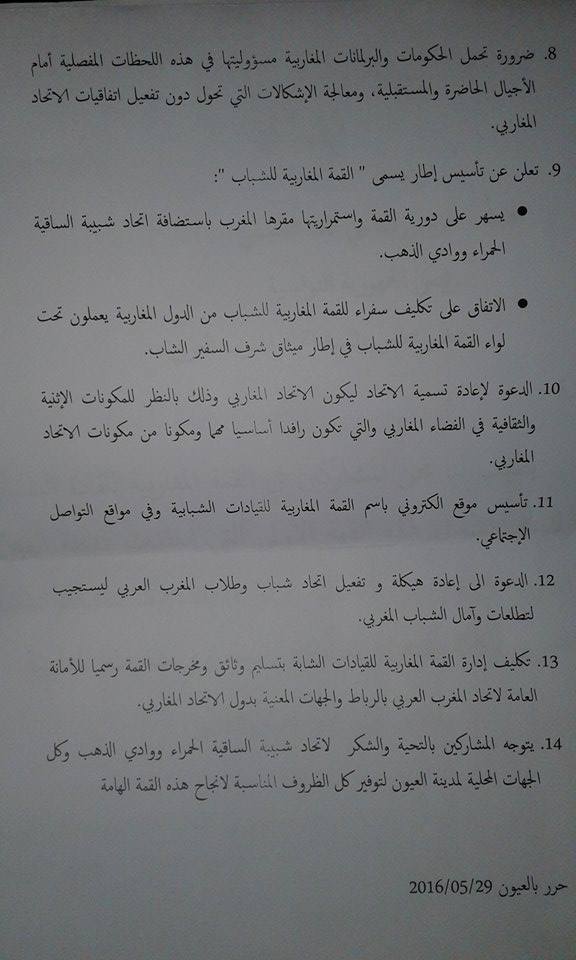 8. ضرورة تحمل الحكومات والبرلمانات المغاربية مسؤوليتها في هذه اللحظات المفصلية أمام
الأجيال الحاضرة والمستقبلية، ومعالجة الإشكالات التي تحول دون تفعيل اتفاقيات الاتحاد
المغاربي.
9. تعلن عن تأسيس إطار يسمى " القمة المغاربية للشباب ":
● يسهر على دورية القمة واستمراريتها مقرها المغرب باستضافة اتحاد شبيبة الساقية
الحمراء ووادي الذهب.
● الاتفاق على تكليف سفراء للقمة المغاربية للشباب من الدول المغاربية يعملون تحت
لواء القمة المغاربية للشباب في إطار ميثاق شرف السفير الشاب.
10. الدعوة لإعادة تسمية الاتحاد ليكون الاتحاد المغاربي وذلك بالنظر للمكونات الإثنية
والثقافية في الفضاء المغاربي والتي تكون رافدا أساسيا مهما ومكونا من مكونات الاتحاد
المغاربي.
11. تأسيس موقع الكتروني باسم القمة المغاربية للقيادات الشبابية وفي مواقع التواصل
الإجتماعي.
12. الدعوة الى إعادة هيكلة و تفعيل اتحاد شباب وطلاب المغرب العربي ليستجيب
لتطلعات وآمال الشباب المغربي.
13. تكليف إدارة القمة المغاربية للقيادات الشابة بتسليم وثائق ومخرجات القمة رسميا للأمانة
العامة لاتحاد المغرب العربي بالرباط والجهات المعنية بدول الاتحاد المغاربي.
14. يتوجه المشاركين بالتحية والشكر لاتحاد شبيبة الساقية الحمراء ووادي الذهب وكل
الجهات المحلية لمدينة العيون لتوفير كل الظروف المناسبة لانجاح هذه القمة الهامة
حرر بالعيون 2016/05/29